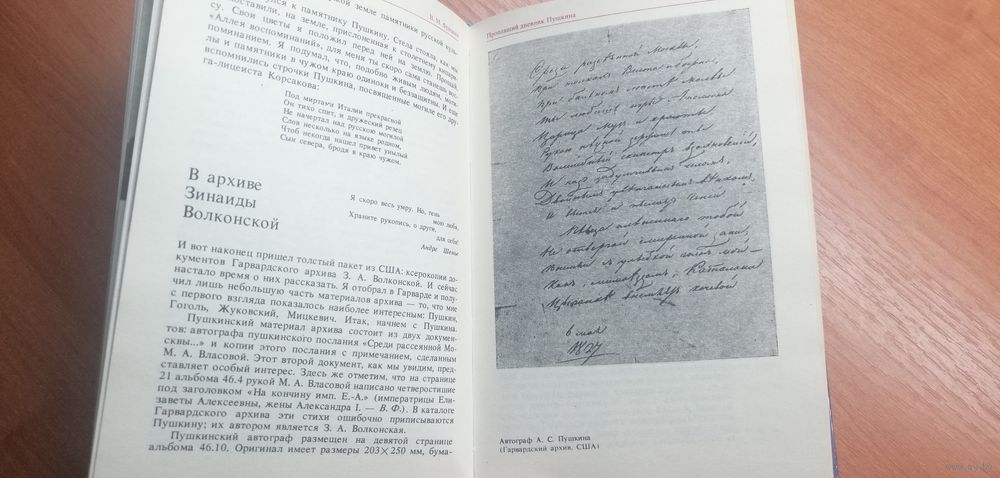 В. М. Фридкин
нулся к памятнику Пушкину. Стела стояла, как мы
поставили, на земле, прислоненная к столетнему кипари-
су. Свои цветы я положил перед ней на землю. Прощай,
«Аллея воспоминаний», для меня ты скоро сама станешь вос-
поминанием. Я подумал, что, подобно живым людям, моги-
лы и памятники в чужом краю одиноки и беззащитны. И еще
вспомнились строчки Пушкина, посвященные могиле его дру-
га-лицеиста Корсакова:
Под миртами Италии прекрасной
Он тихо спит, и дружеский резец
Не начертал над русскою могилой
Слов несколько на языке родном,
Чтоб некогда нашел привет унылый
Сын севера, бродя в краю чужом.
В архиве
Зинаиды
Волконской
Я скоро весь умру. Но, тень
мою любя,
Храните рукопись, о други,
для себя!
Андре Шенье
И вот наконец пришел толстый пакет из США: ксерокопии до-
кументов Гарвардского архива З. А. Волконской. И сейчас
настало время о них рассказать. Я отобрал в Гарварде и полу-
чил лишь небольшую часть материалов архива — то, что мне
с первого взгляда показалось наиболее интересным: Пушкин,
Гоголь, Жуковский, Мицкевич. Итак, начнем с Пушкина.
Пушкинский материал архива состоит из двух докумен-
тов: автографа пушкинского послания «Среди рассеянной Мо-
сквы...» и копии этого послания с примечанием, сделанным
М. А. Власовой. Этот второй документ, как мы увидим, пред-
ставляет особый интерес. Здесь же отметим, что на странице
21 альбома 46.4 рукой М. А. Власовой написано четверостишие
под заголовком «На кончину имп. Е.-А.» (императрицы Ели-
заветы Алексеевны, жены Александра I. — В. Ф.). В каталоге
Гарвардского архива эти стихи ошибочно приписываются
Пушкину; их автором является З. А. Волконская.
Пушкинский автограф размещен на девятой странице
альбома 46.10. Оригинал имеет размеры 203×250 мм, бума-
Пропавший дневник Пушкина
Среди рассеянной Москвы,
При толках виста и бостона,
При бальном лепете молвы
Ты любишь игры Аполлона
Царица муз и красоты
Рукою нежной держишь ты
Волшебный скипетр вдохновений,
И над задумчивым челом,
Двойным увенчанным венком,
И вьется и пылает гений
Певца плененного тобой
Не отвергай смиренной дани,
Внемли с улыбкой голос мой
Как мимоездом Каталани
Цыганке внемлет кочевой
6 мая
1827
Автограф А. С. Пушкина
(Гарвардский архив. США)